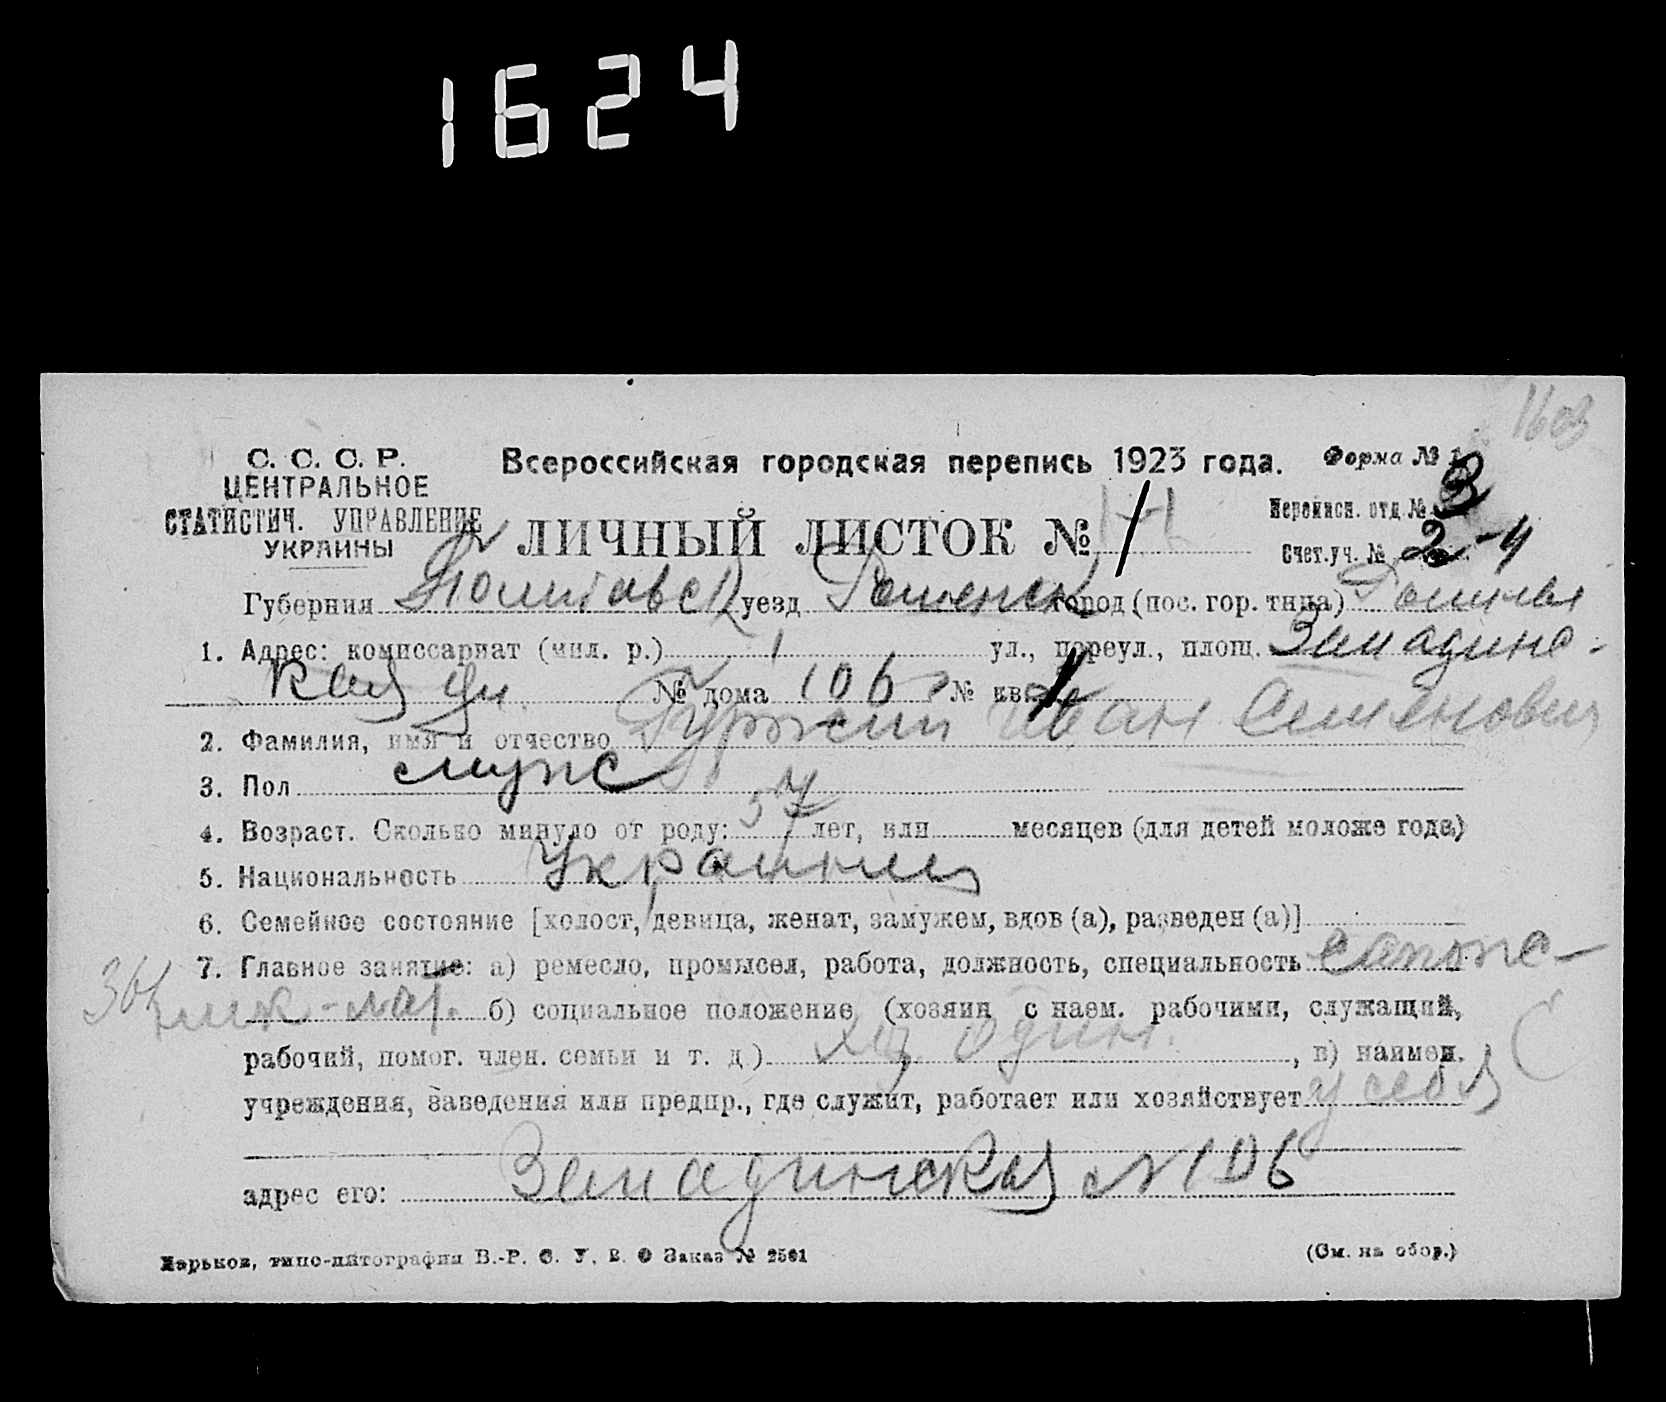 1624
1603
С. С. С. Р.
ЦЕНТРАЛЬНОЕ
СТАТИСТИЧ. УПРАВЛЕНИЕ
УКРАИНЫ
Всероссийская городская перепись 1923 года.
Форма № 1
ЛИЧНЫЙ ЛИСТОК №
Переписн. отд. № 3
Счет. уч. № 2-4
Губерния Полтавск уезд Роменск город (пос. гор. типа) Ромны
1. Адрес: комиссариат (мил. р.) 1 ул., переул., площ.
№ дома 106 № кв. 1
2. Фамилия, имя и отчество Гуржий Иван Семенович
3. Пол мужс
4. Возраст. Сколько минуло от роду: 57 лет, или месяцев (для детей моложе года)
5. Национальность Украинец
6. Семейное состояние [холост, девица, женат, замужем, вдов (а), разведен (а)]
7. Главное занятие: а) ремесло, промысел, работа, должность, специальность сапож-
б) социальное положение (хозяин с наем. рабочими, служащий,
рабочий, помог. член. семьи и т. д.) , в) наимен.
учреждения, заведения или предпр., где служит, работает или хозяйствует у себя
адрес его: № 106
Харьков, типо-литография В.-Р. С. У. В. О Заказ № 2591
(См. на обор.)